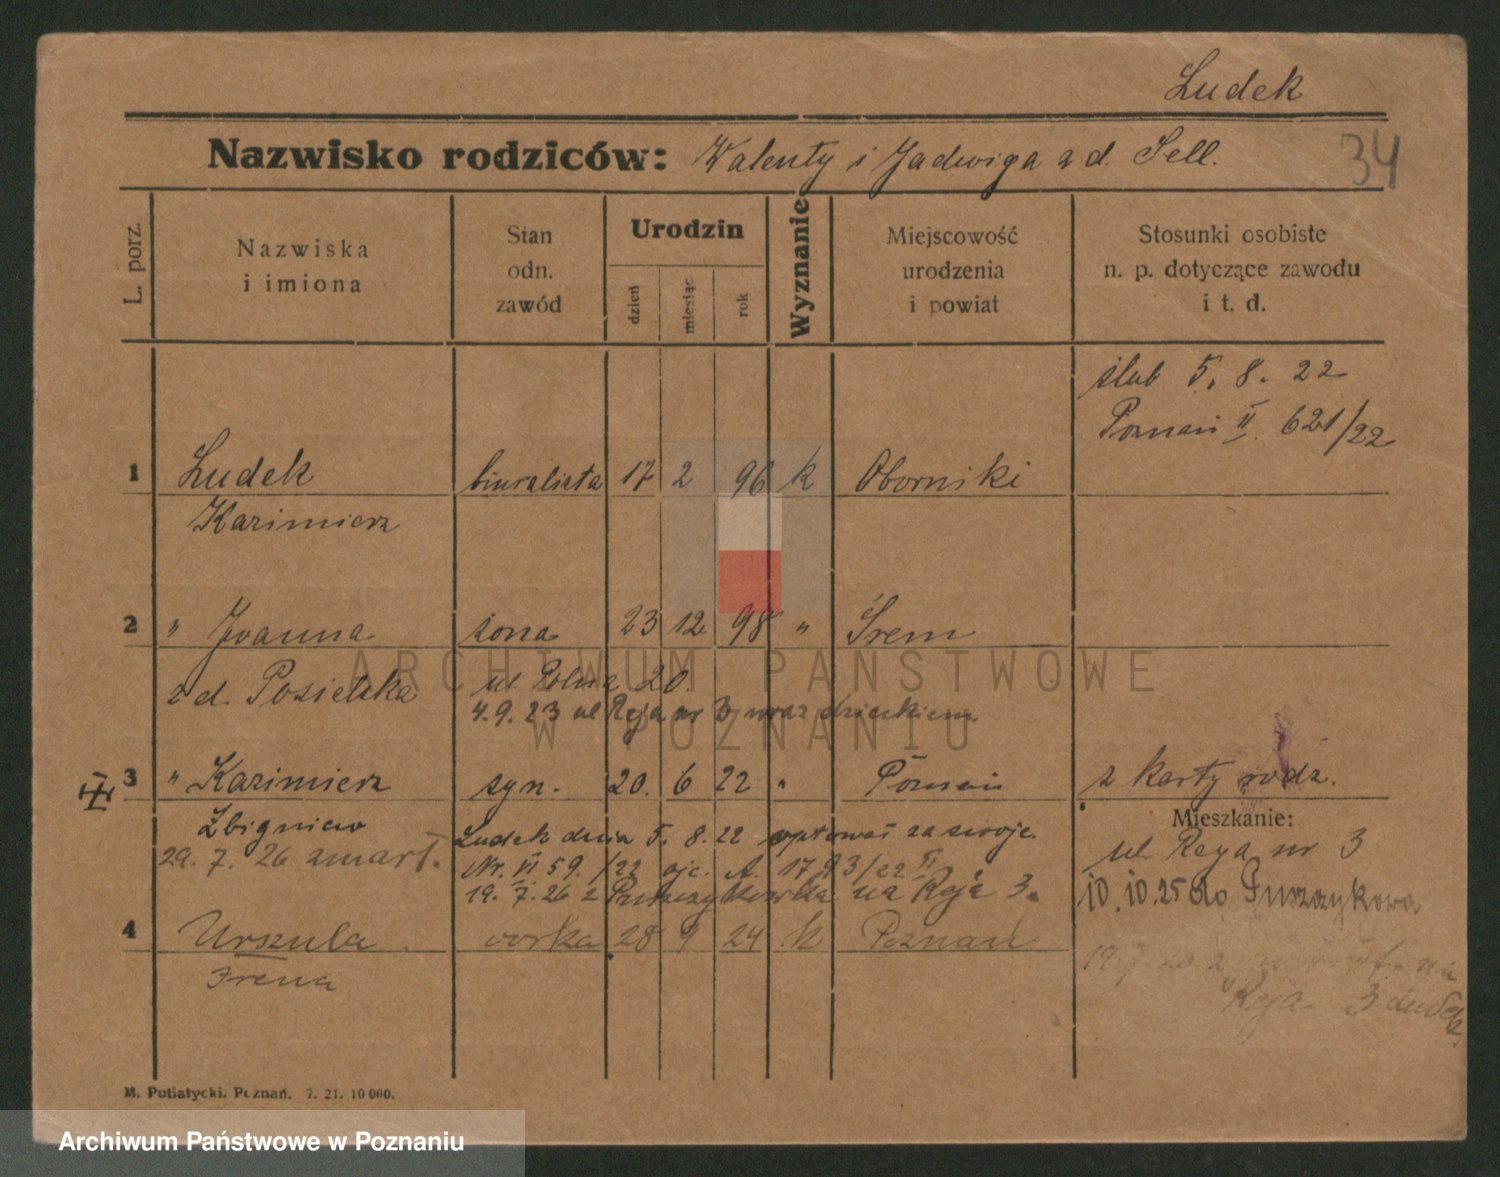 Ludek
Nazwisko rodziców: Walenty i Jadwiga z d. Sell.
34
L. porz.
Nazwiska
i imiona
Stan
odn.
zawód
Urodzin
dzień
miesiąc
rok
Wyznanie
Miejscowość
urodzenia
i powiat
Stosunki osobiste
n. p. dotyczące zawodu
i t. d.
ślub 5. 8. 22
Poznań II. 621/22
1 Ludek biuralista 17 2 96 k Oborniki
Kazimierz
2 " Joanna żona 23 12 98 " Śrem
z d. Posielska ul Polna 20.
4.9.23 ul Reja nr 3 wraz dzieckiem
3 " Kazimierz syn. 20. 6 22 " Poznań z karty rodz.
Zbigniew
Mieszkanie:
Ludek dnia 5. 8. 22 optował za swoje.
29. 7. 26 zmarł.
ul. Reya nr 3
Nr. VI 59./22 A. II
19. 7. 26 z Puszczykowka na Reja 3.
10.10.25 do Puszczykowa
4 Urszula córka 28 9 24 k Poznań
Irena
19 7 26 z na
Reja 3
M. Putiatycki. Poznań. 7. 21. 10 000.
ARCHIWUM PAŃSTWOWE
W POZNANIU
Archiwum Państwowe w Poznaniu